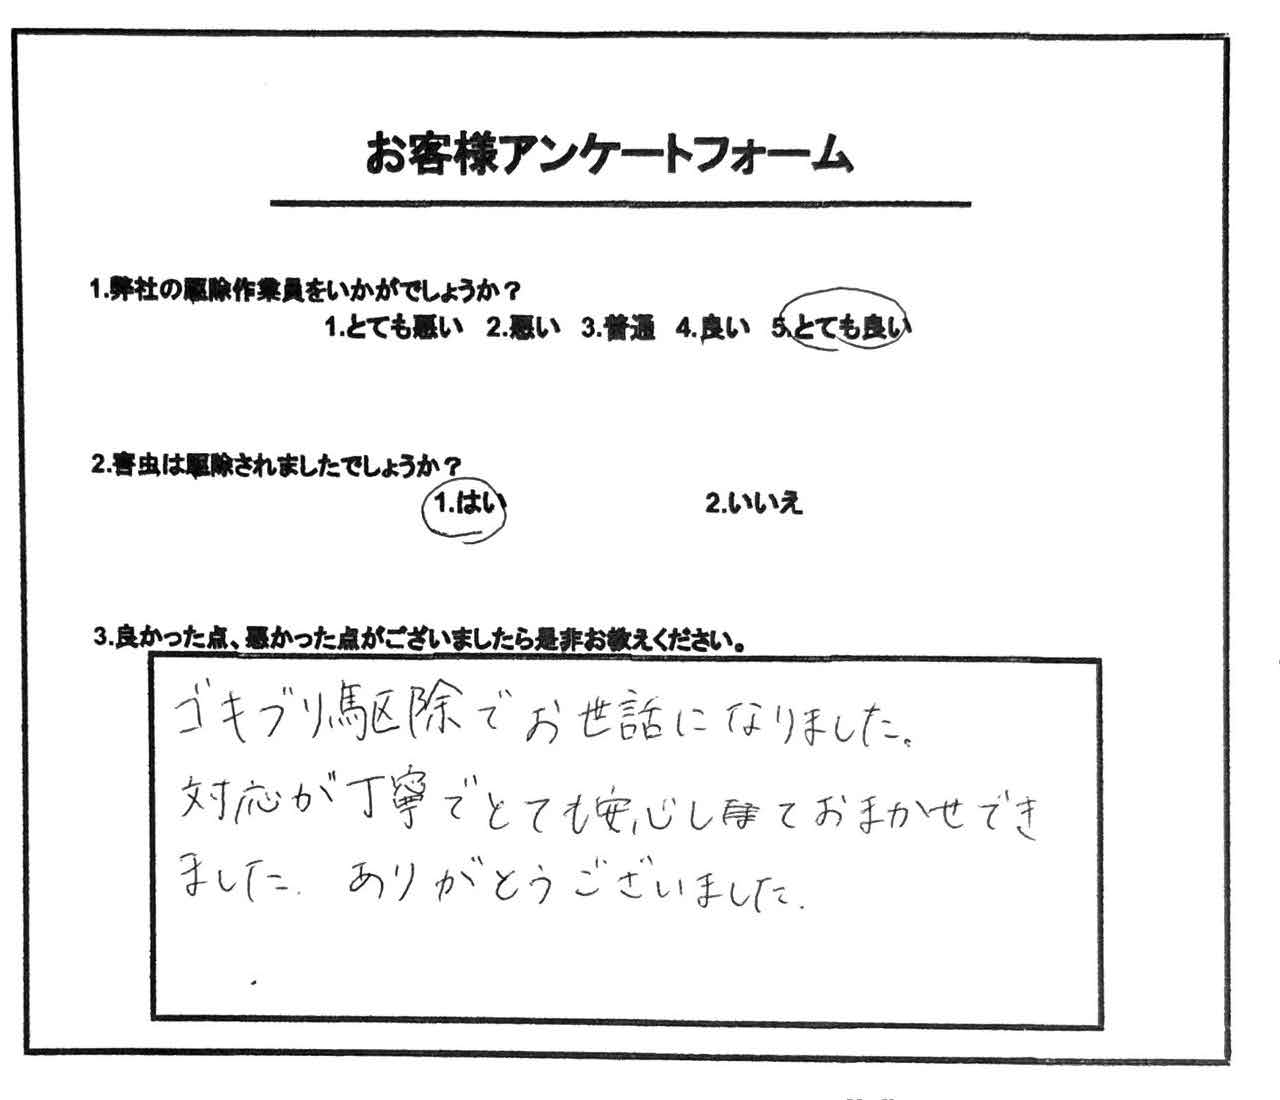 お客様アンケートフォーム
1.弊社の駆除作業員をいかがでしょうか？
1.とても悪い 2.悪い 3.普通 4.良い 5.とても良い
2.害虫は駆除されましたでしょうか？
1.はい 2.いいえ
3.良かった点、悪かった点がございましたら是非お教えください。
ゴキブリ駆除でお世話になりました。
対応が丁寧でとても安心しておまかせでき
ました. ありがとうございました.